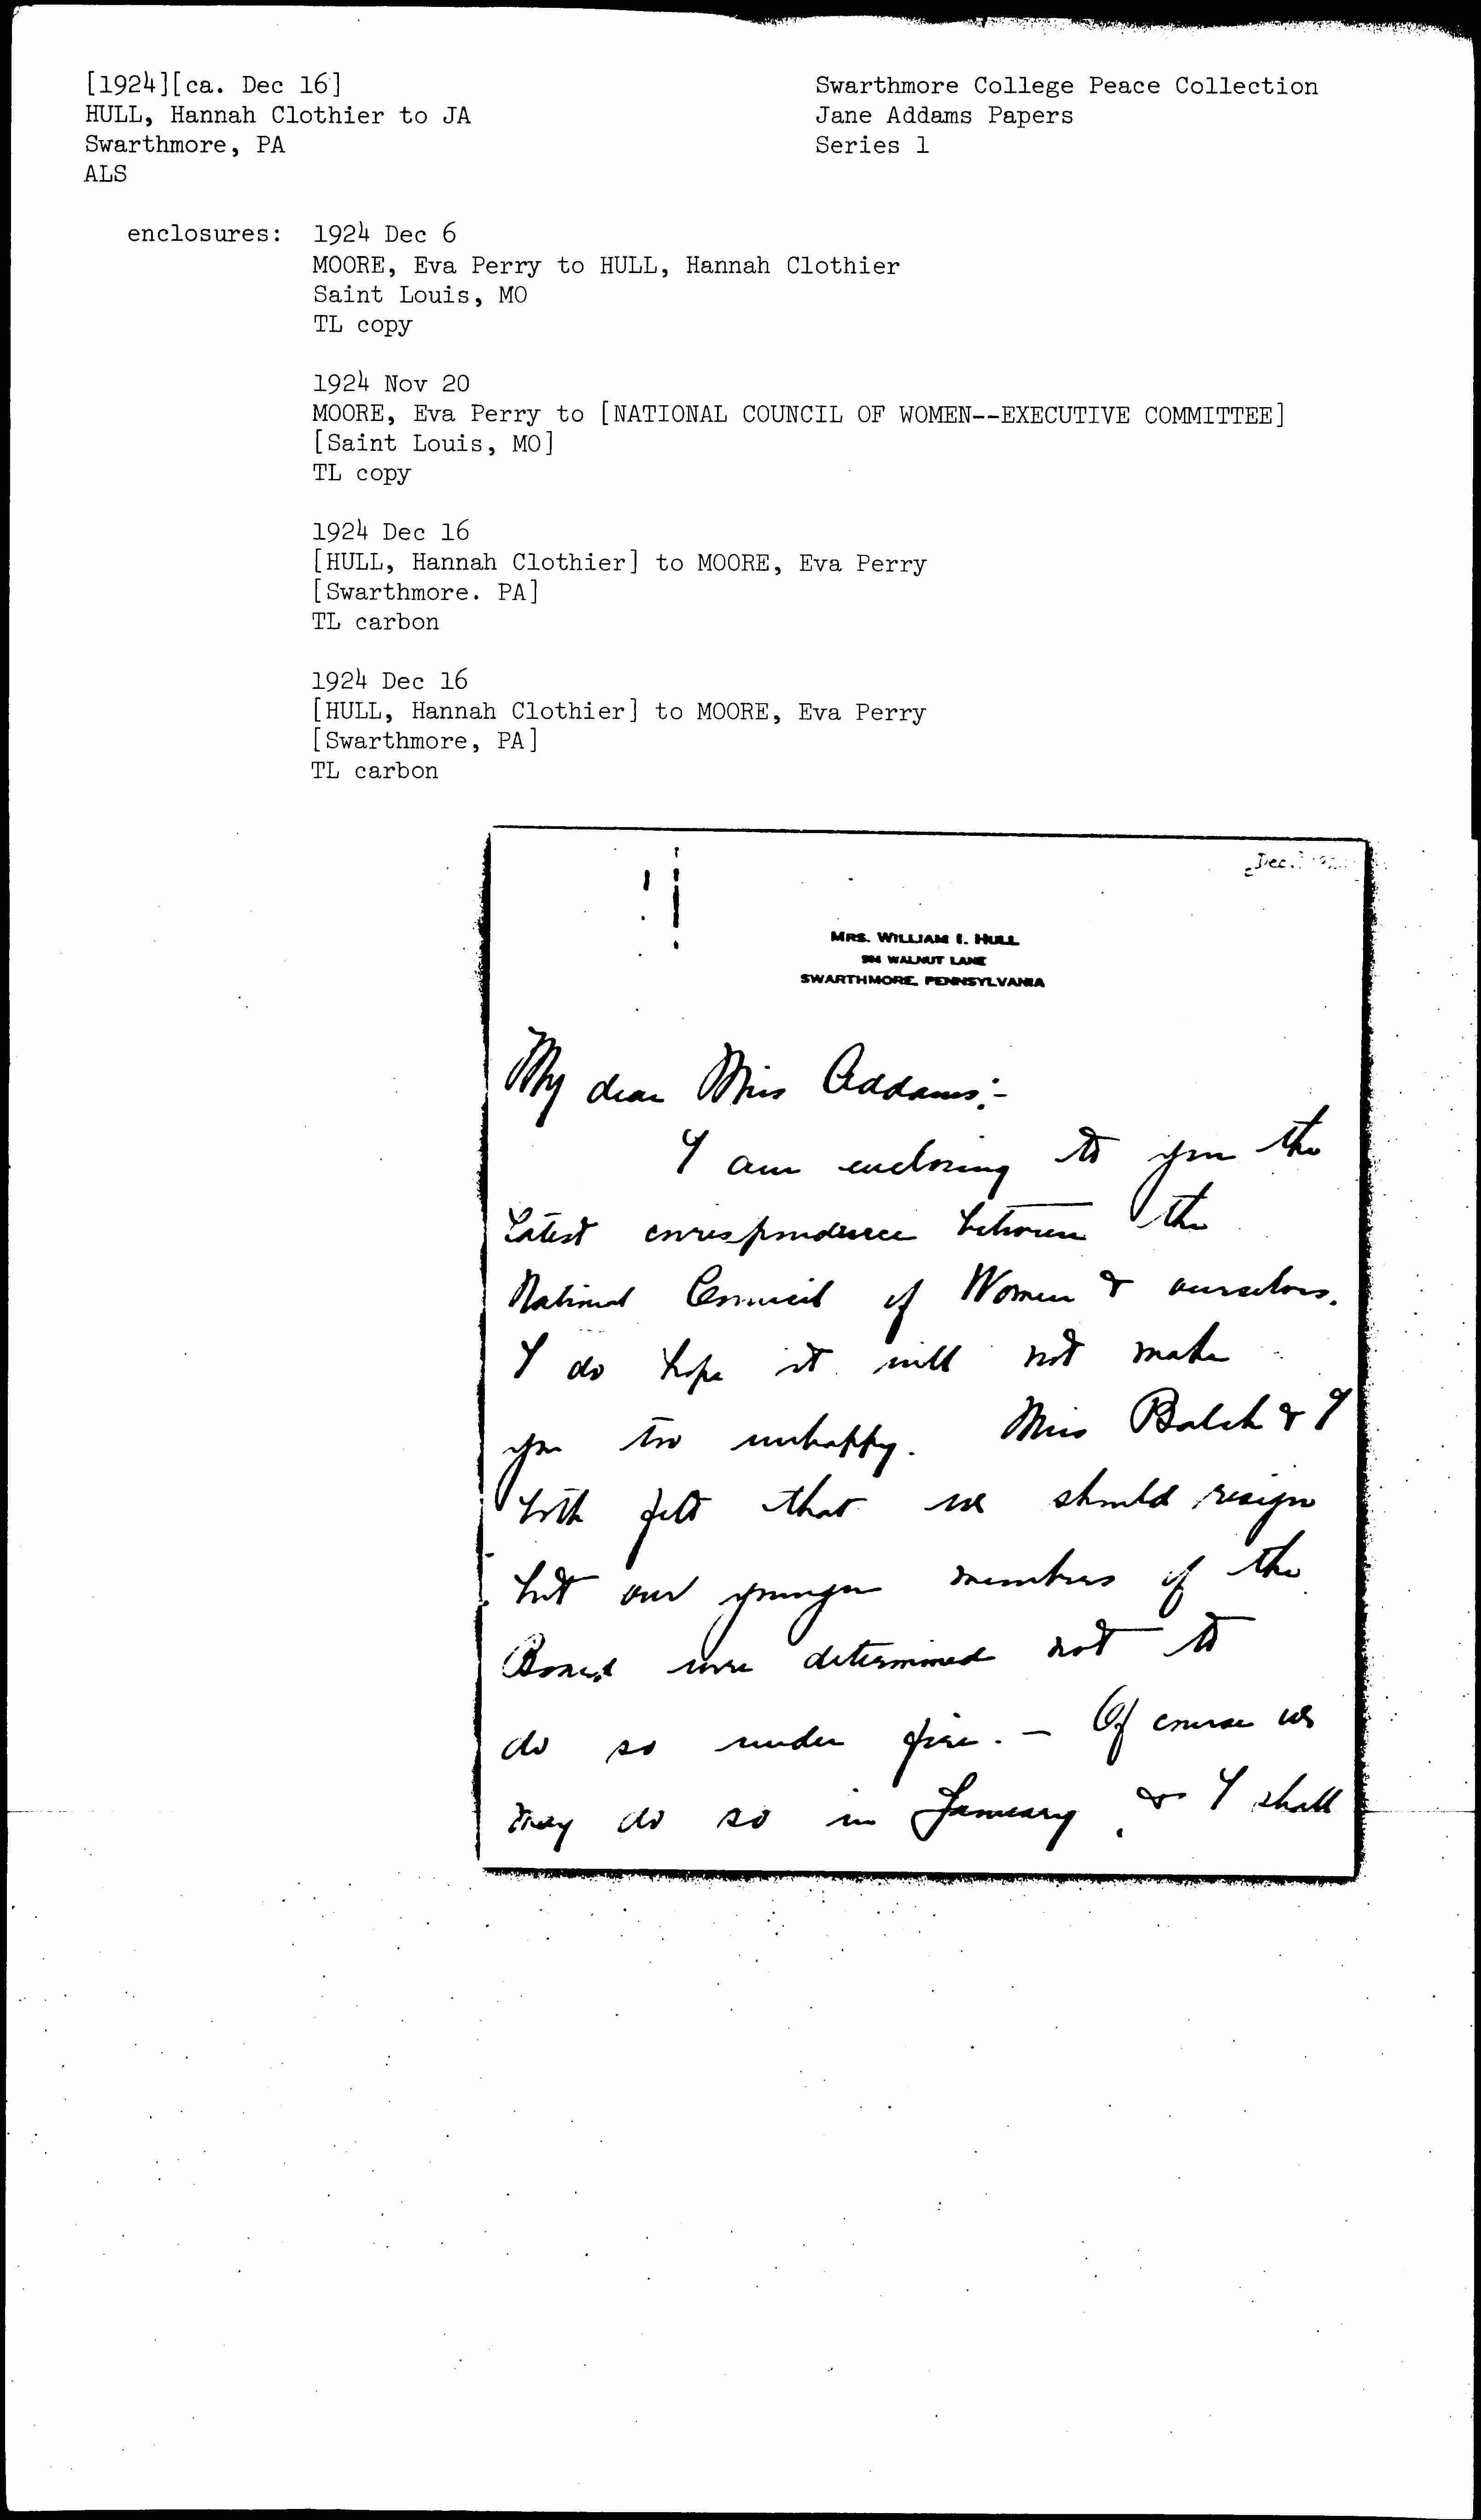 [1924][ca. Dec 16]
HULL, Hannah Clothier to JA
Swarthmore, PA
ALS
Swarthmore College Peace Collection
Jane Addams Papers
Series 1
enclosures: 1924 Dec 6
MOORE, Eva Perry to HULL, Hannah Clothier
Saint Louis, MO
TL copy
1924 Nov 20
MOORE, Eva Perry to [NATIONAL COUNCIL OF WOMEN--EXECUTIVE COMMITTEE]
[Saint Louis, MO]
TL copy
1924 Dec 16
[HULL, Hannah Clothier] to MOORE, Eva Perry
[Swarthmore. PA]
TL carbon
1924 Dec 16
[HULL, Hannah Clothier] to MOORE, Eva Perry
[Swarthmore, PA]
TL carbon
Dec.
MRS. WILLIAM I. HULL
WALNUT LANE
SWARTHMORE, PENNSYLVANIA
My dear Miss Addams:-
I am enclosing to you the
latest correspondence between the
National Council of Women & ourselves.
I do hope it will not make
you too unhappy. Miss Balch & I
both felt that we should resign
but our younger members of the
Board were determined not to
do so under fire. - Of course we
may do so in January, & I shall